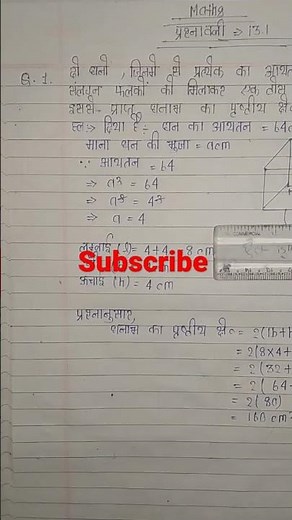 Maths
प्रश्नावली ⇒ 13.1
Q.1. दो घनों, जिनमें से प्रत्येक का आयतन
संलग्न फलकों को मिलाकर एक ठोस
इससे प्राप्त घनाभ का पृष्ठीय क्षे
हल:→ दिया है - घन का आयतन = 64c
माना घन की भुजा = a cm
∵ आयतन = 64
⇒ a³ = 64
⇒ a³ = 4³
⇒ a = 4
लम्बाई (l) = 4+4 = 8 cm
Subscribe
ऊंचाई (h) = 4 cm
प्रश्नानुसार,
घनाभ का पृष्ठीय क्षे० = 2(lb+b
= 2(8×4+
= 2(32+
= 2(64
= 2(80)
= 160 cm²